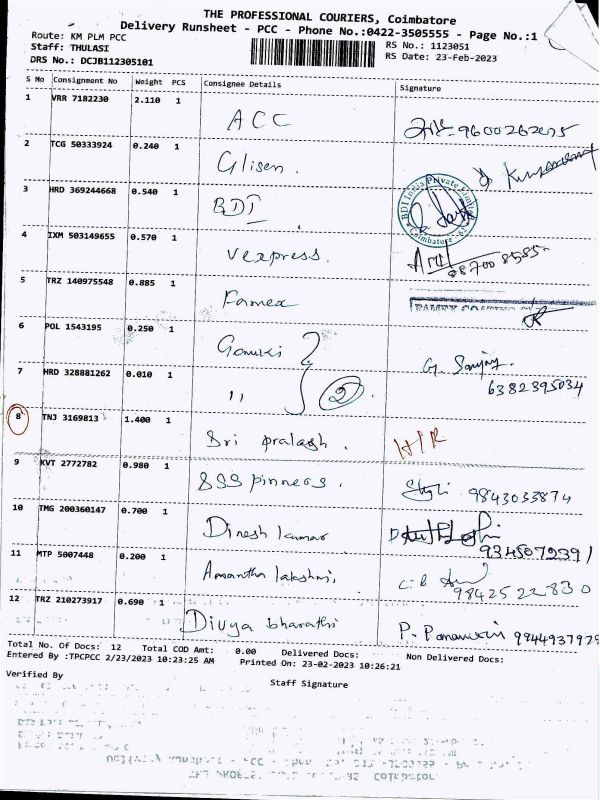 THE PROFESSIONAL COURIERS, Coimbatore
Delivery Runsheet - PCC - Phone No.:0422-3505555 - Page No.:1
Route: KM PLM PCC
RS No.: 1123051
Staff: THULASI
RS Date: 23-Feb-2023
DRS No.: DCJB112305101
S No Consignment No Weight PCS Consignee Details Signature
1 VRR 7182230 2.110 1 ACC 9600262205
2 TCG 50333924 0.240 1 Glisen.
3 HRD 369244668 0.540 1 BDI
BDI India Private Limited
Coimbatore
4 IXM 503149655 0.570 1 Vexpress.
5 TRZ 140975548 0.885 1 Famex
6 POL 1543195 0.250 1 Gowri G. Sanjay.
7 HRD 328881262 0.010 1 ,, 2 6382395034
8 TNJ 3169813 1.400 1 Sri pralagh. H/R
9 KVT 2772782 0.980 1 SSS pinners. 9843033874
10 TMG 200360147 0.700 1 Dinesh kumar 9345072391
11 MTP 5007448 0.200 1 Amantha lakshmi, 9842522830
12 TRZ 210273917 0.690 1 Divya bharathi
Total No. Of Docs: 12 Total COD Amt: 0.00 Delivered Docs: Non Delivered Docs:
Entered By :TPCPCC 2/23/2023 10:23:25 AM Printed On: 23-02-2023 10:26:21
Verified By
Staff Signature